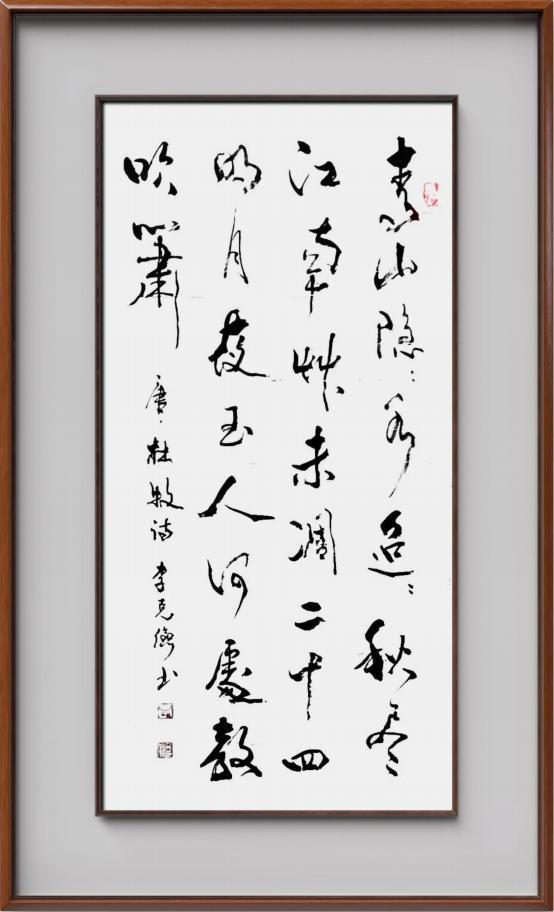 青山隐々水迢々秋尽
江南艸未凋二十四
明月夜玉人何處教
吹簫
唐·杜牧诗 李克书